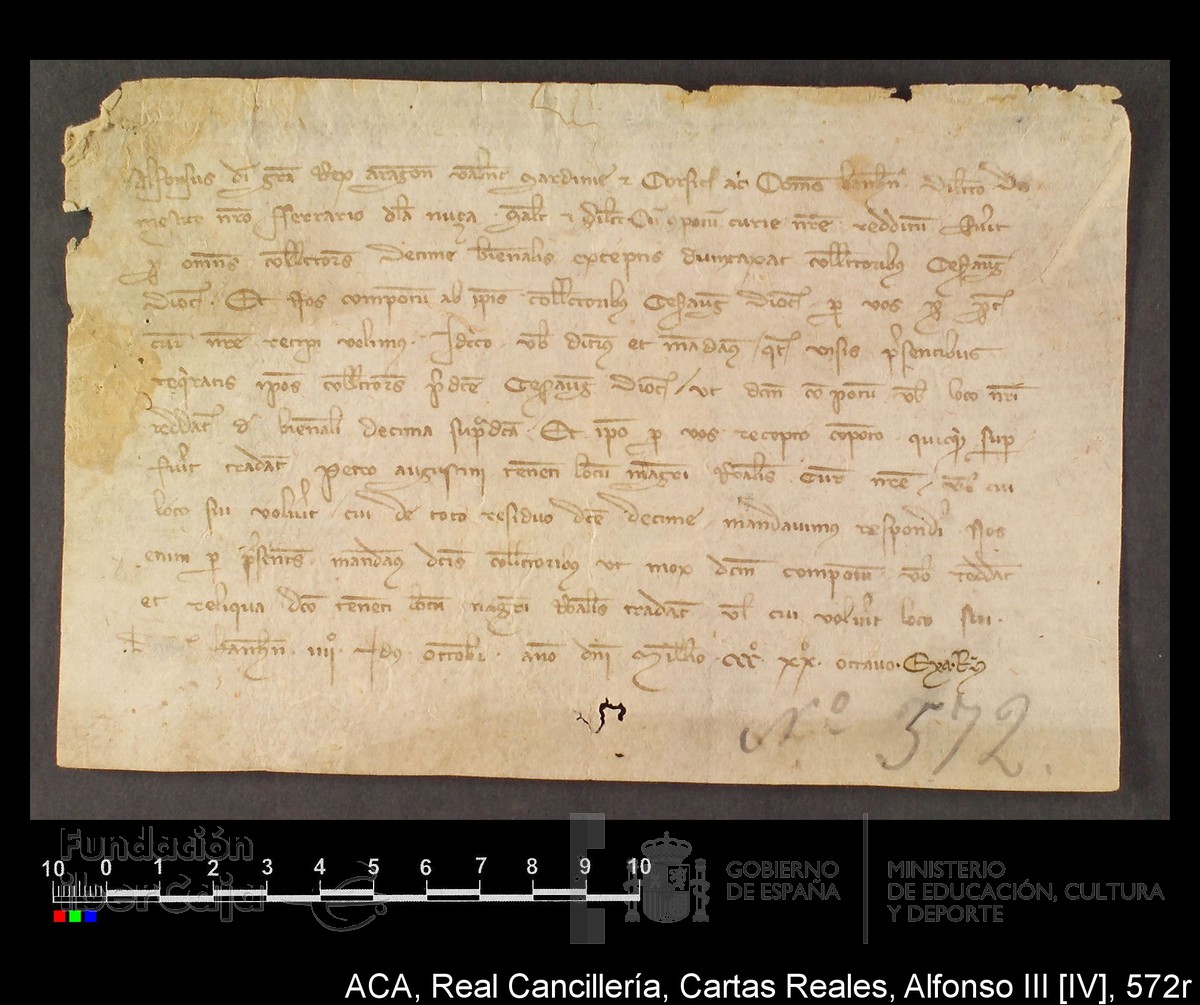 Alfonsus di gra Rex aragon valent Sardinie et Corsice ac Comes barchn dilecto do
mestico nro fferrario dla nuça salt et dilect Cum compotu curie nre reddituri fuerit
omnes collectores decime biennalis exceptis dumtaxat collectoribus Cesaraug
dioc Et nos compotum ab ipis collectoribus Cesaraug dioc per vos
cur nre recipi volimus Idcirco vob dicimus et mandamus qt visis presentibus
requiratis ipos collectores pdce Cesaraug dioc ut dcm compotum vob loco nri
reddat de biennali decima supradca Et ipo per vos recepto compoto quicquid
fuerit tradat Petro augustini tenenti locum magri Ralis Curie nre vel cui
loco sui voluerit cui de toto residuo dce decime mandavimus responderi Nos
enim per presentes mandamus dcis collectoribus ut mox dcm compotum vob reddat
et reliqua dco tenenti locum magri Ralis tradat vel cui voluerit loco sui
barchn iiiiº Idus Octobr anno dni Millo CCCº xxº octavo
Nº 572.
Fundación
iberCaja
10 0 1 2 3 4 5 6 7 8 9 10
GOBIERNO
DE ESPAÑA
MINISTERIO
DE EDUCACIÓN, CULTURA
Y DEPORTE
ACA, Real Cancillería, Cartas Reales, Alfonso III [IV], 572r